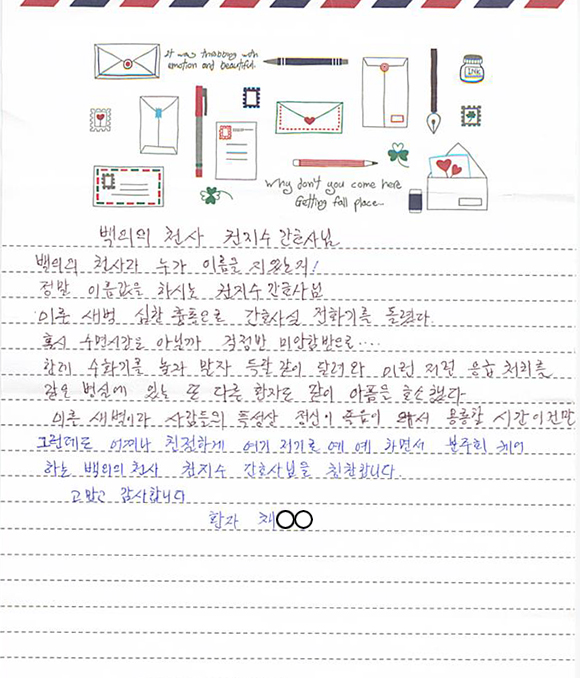 It was throbbing with
emotion and beautiful.
INK
Why don't you come here
Getting fall place...
백의의 천사 천지수 간호사님
백의의 천사라 누가 이름을 지었는지!
정말 이름값을 하시는 천지수 간호사님
이른 새벽 심한 통증으로 간호사실 전화기를 돌렸다.
혹시 수면시간은 아닐까 걱정반 미안함반으로....
한데 수화기를 놓자 말자 득달같이 달려와 이런 저런 응급 처치를
같은 병실에 있는 또 다른 환자도 같이 아픔을 호소했다
이른 새벽이라 사람들의 특성상 정신이 몽롱할 시간이건만
그런데도 어찌나 친절하게 여기 저기로 예 예 하면서 분주히
하는 백의의 천사 천지수 간호사님을 칭찬합니다.
고맙고 감사합니다
환자 채○○